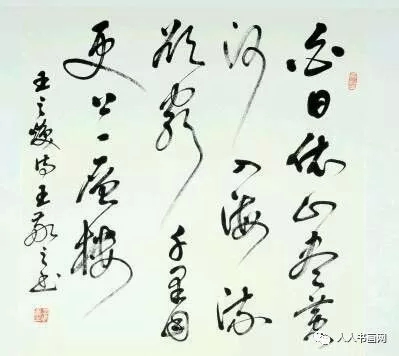 白日依山尽黄
河入海流
欲穷千里目
更上一层楼
王之焕诗王敬之书
人人书画网